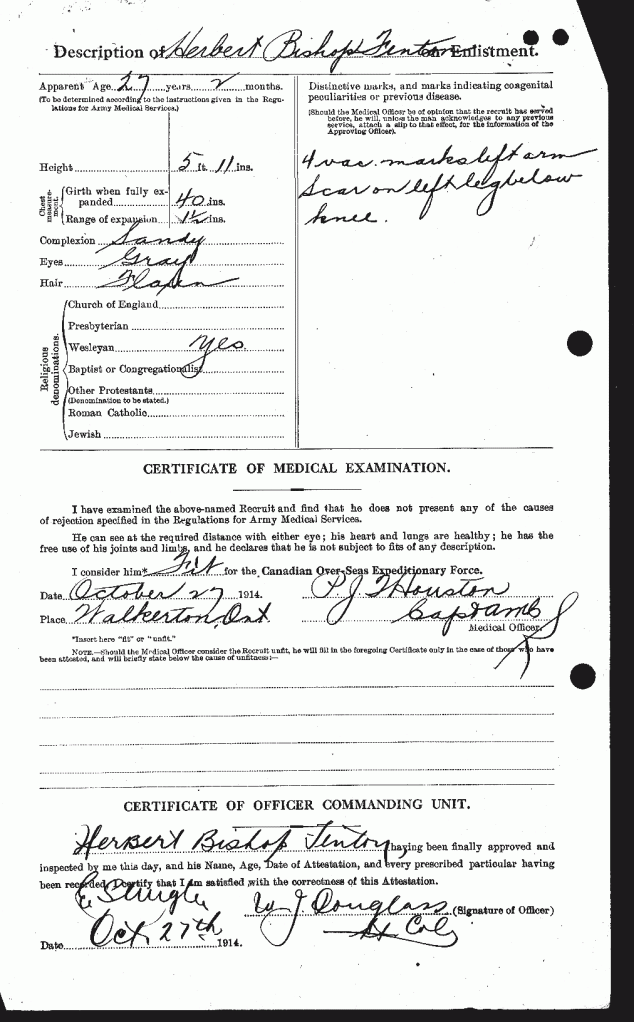 Description of Herbert Bishop Fenton on Enlistment.
Apparent Age 27 years 2 months.
(To be determined according to the instructions given in the Regulations for Army Medical Services.)
Height 5 ft. 11 ins.
Chest measurement.
Girth when fully expanded 40 ins.
Range of expansion 1½ ins.
Complexion Sandy
Eyes Gray
Hair Flaxen
Religious denominations.
Church of England
Presbyterian
Wesleyan Yes
Baptist or Congregationalist
Other Protestants
(Denomination to be stated.)
Roman Catholic
Jewish
Distinctive marks, and marks indicating congenital
peculiarities or previous disease.
(Should the Medical Officer be of opinion that the recruit has served
before, he will, unless the man acknowledges to any previous
service, attach a slip to that effect, for the information of the
Approving Officer).
4 vac. marks left arm
Scar on left leg below
knee.
CERTIFICATE OF MEDICAL EXAMINATION.
I have examined the above-named Recruit and find that he does not present any of the causes
of rejection specified in the Regulations for Army Medical Services.
He can see at the required distance with either eye; his heart and lungs are healthy; he has the
free use of his joints and limbs, and he declares that he is not subject to fits of any description.
I consider him* Fit for the Canadian Over-Seas Expeditionary Force.
Date October 27 1914.
Place Walkerton, Ont
Houston
Capt AMC
Medical Officer.
*Insert here "fit" or "unfit."
NOTE.—Should the Medical Officer consider the Recruit unfit, he will fill in the foregoing Certificate only in the case of those who have
been attested, and will briefly state below the cause of unfitness:—
CERTIFICATE OF OFFICER COMMANDING UNIT.
Herbert Bishop Fenton having been finally approved and
inspected by me this day, and his Name, Age, Date of Attestation, and every prescribed particular having
been recorded, I certify that I am satisfied with the correctness of this Attestation.
W J. Douglass (Signature of Officer)
Lt Col
Date Oct 27th 1914.